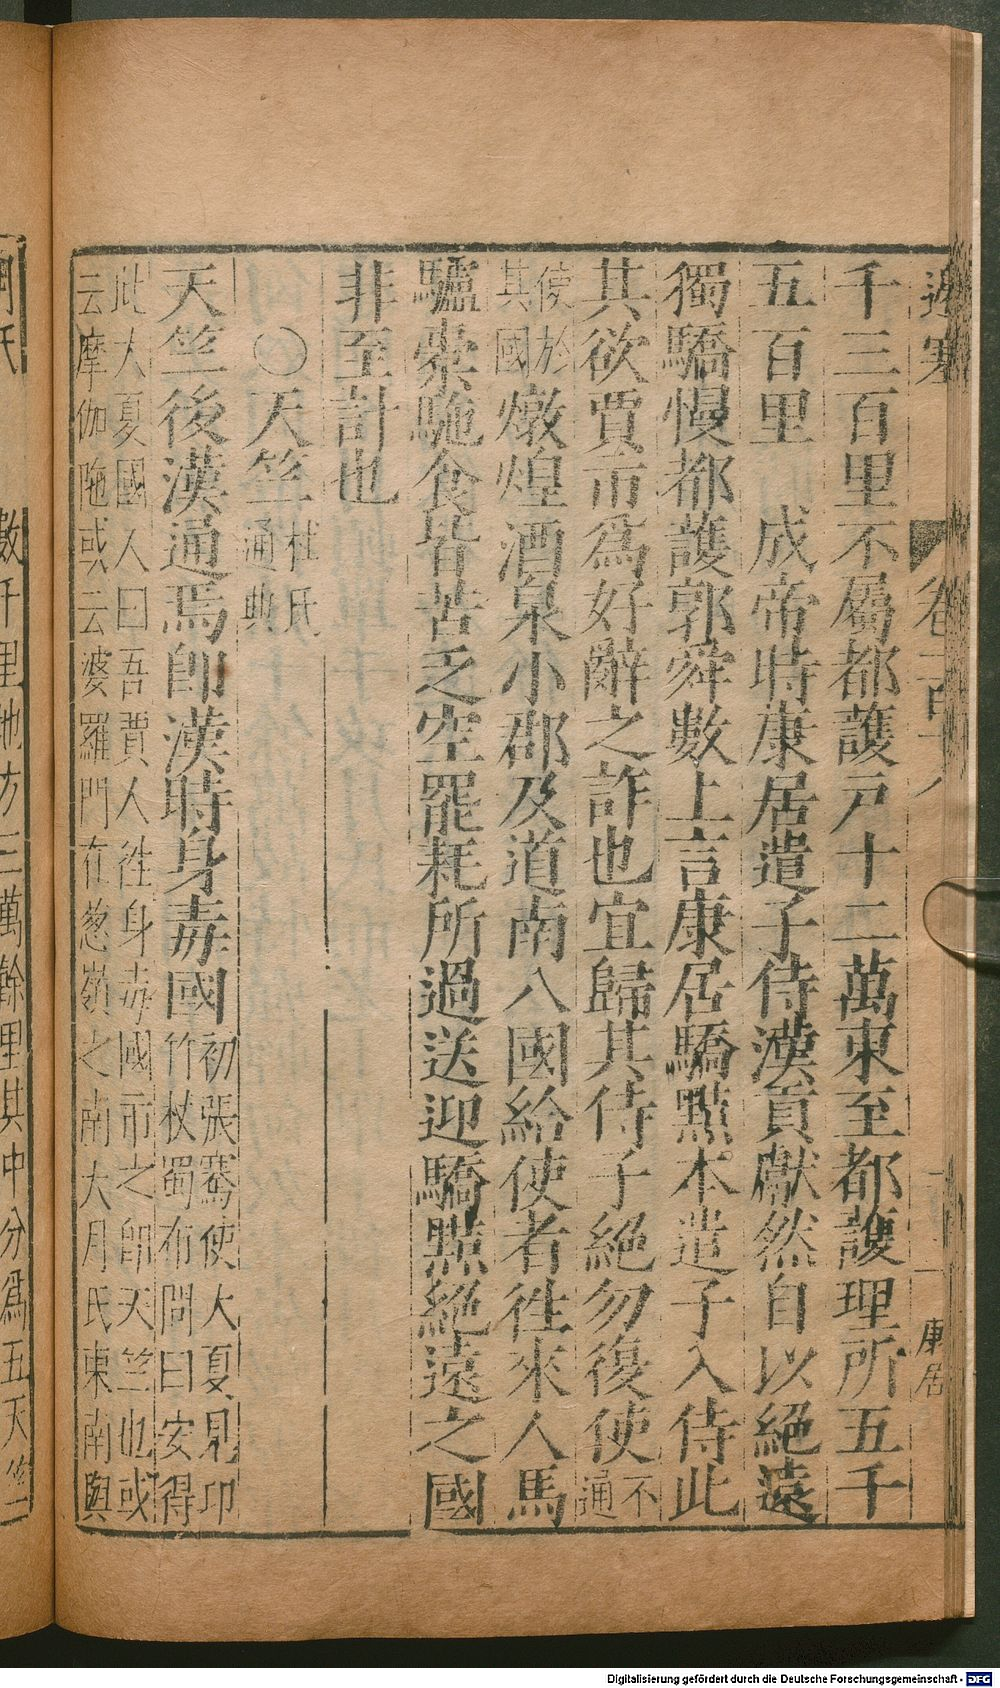 邊塞 卷二百十八 康居
千三百里不屬都護戸十二萬東至都護理所五千
五百里 成帝時康居遣子侍漢貢獻然自以絕遠
獨驕慢都護郭舜數上言康居驕黠本遣子入侍此
其欲賈市爲好辭之詐也宜歸其侍子絕勿復使不通
使於其國燉煌酒泉小郡及道南八國給使者徃來人馬
驢槖駞食皆苦乏空罷耗所過送迎驕黠絕遠之國
非至計也
○天竺杜氏通典
天竺後漢通焉卽漢時身毒國初張騫使大夏見卭竹杖蜀布問曰安得
此大夏國人曰吾賈人徃身毒國市之卽天竺也或
云摩伽陁或云婆羅門在葱嶺之南大月氏東南與
數千里地方三萬餘里其中分爲五天竺
Digitalisierung gefördert durch die Deutsche Forschungsgemeinschaft - DFG